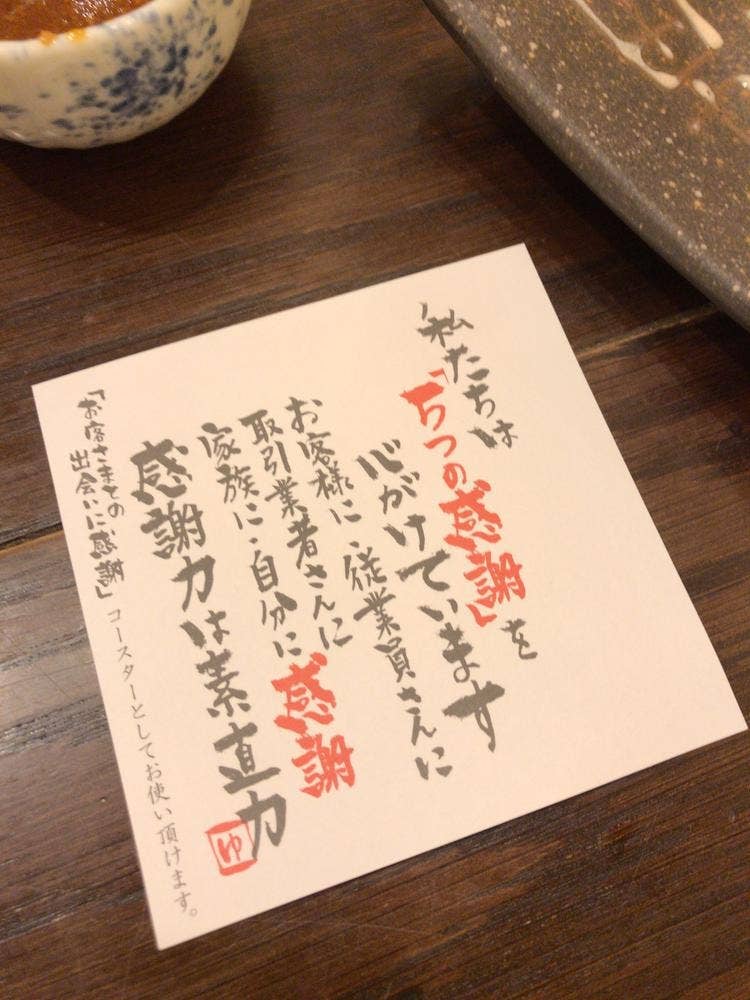 私たちは
「5つの感謝」を
心がけています
お客様に・従業員さんに
取引業者さんに
家族に・自分に感謝
感謝力は素直力
ゆ
「お客さまとの
出会いに感謝」
コースターとしてお使い頂けます。